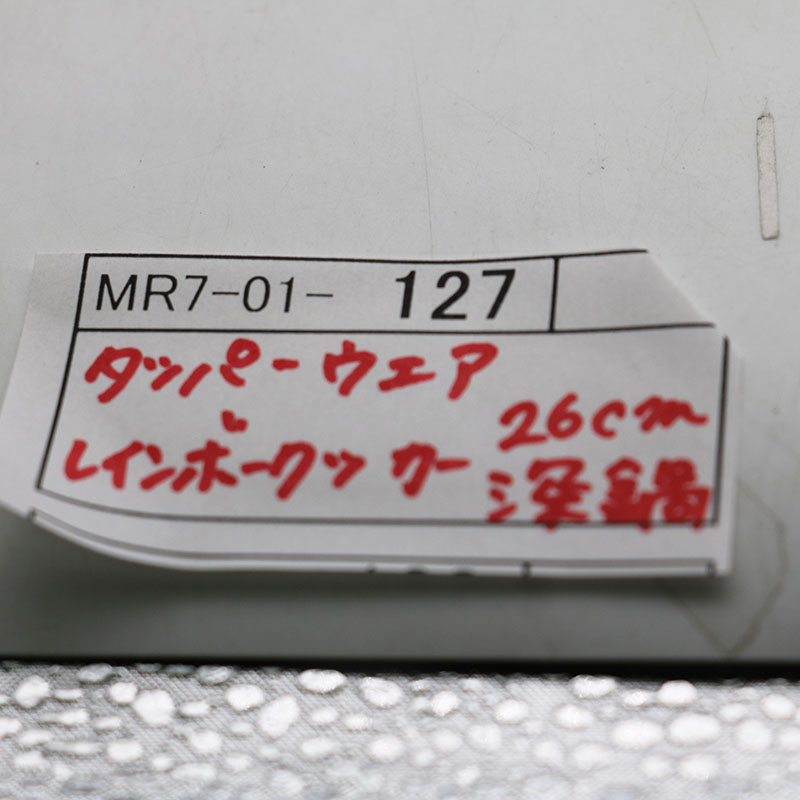 MR7-01- 127
タッパーウエア
レインボークッカー 26cm
深鍋